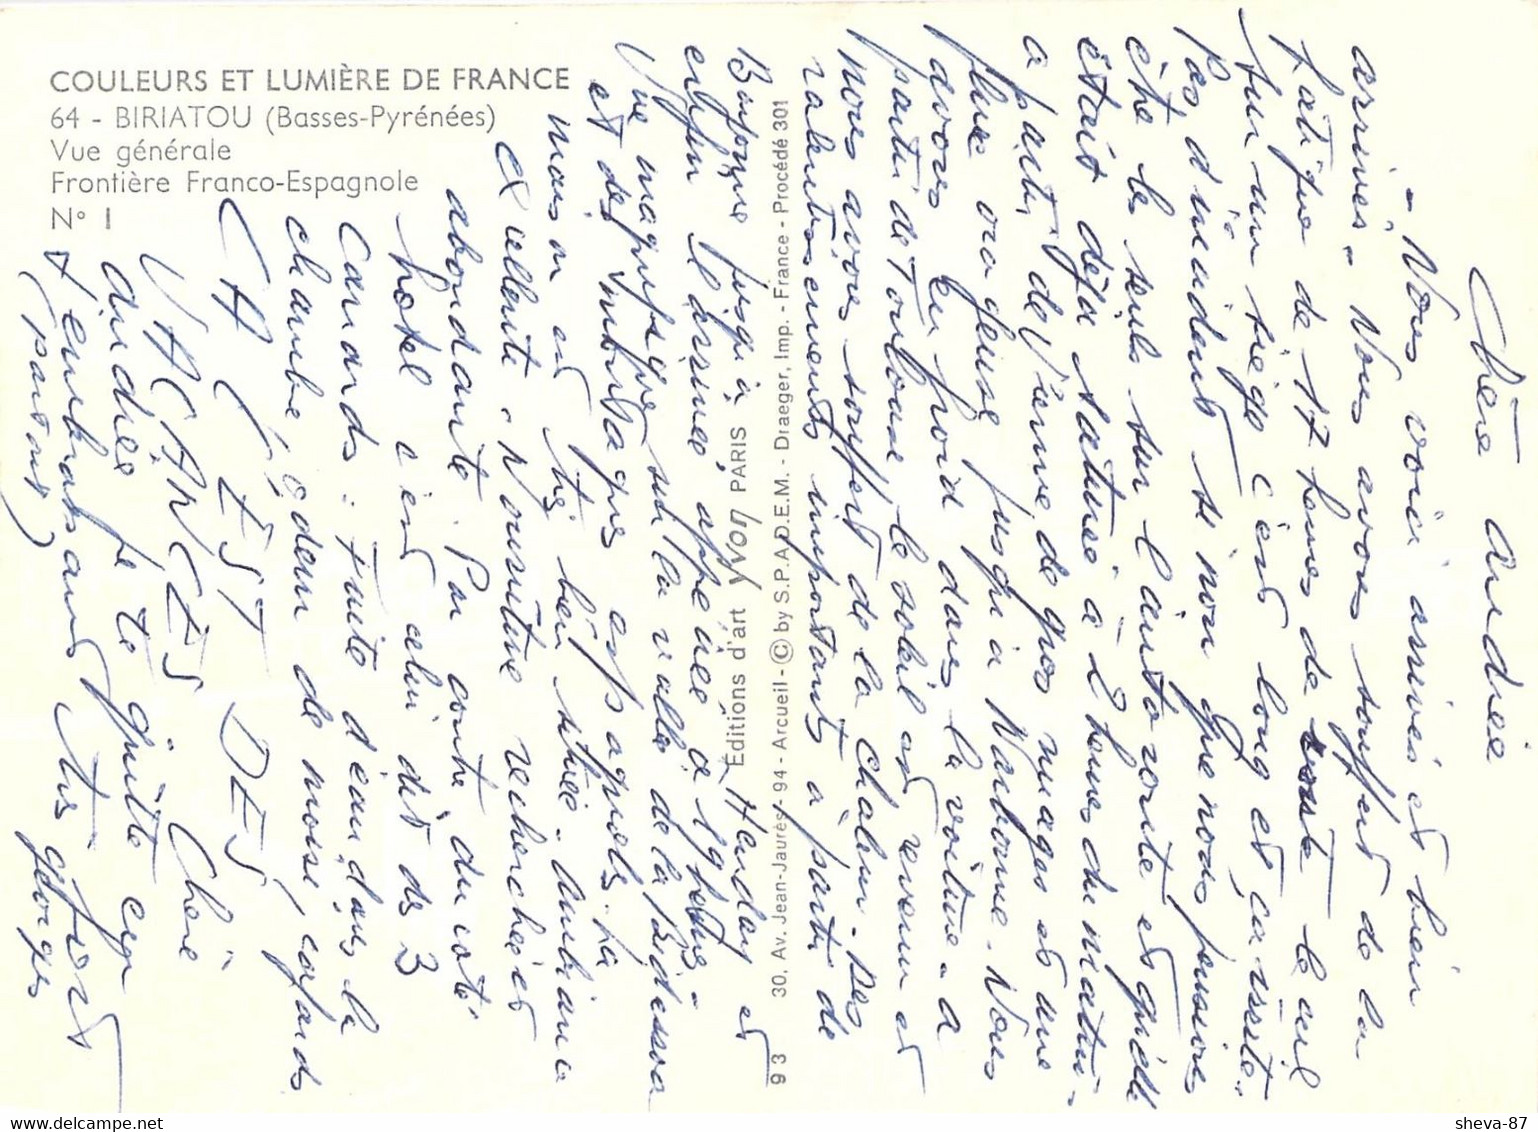 COULEURS ET LUMIÈRE DE FRANCE
64 - BIRIATOU (Basses-Pyrénées)
Vue générale
Frontière Franco-Espagnole
N° 1
Editions d'art yvon PARIS
30, Av. Jean-Jaurès - 94 - Arcueil - © by S.P.A.D.E.M. - Draeger, Imp. - France - Procédé 301
93
Chère Andrée
- Nous voici arrivés et bien
arrivés. Nous avons souffert de la
fatigue de 17 heures de route le cul
sur un siège c'est long et ça use.
Pas d'incident si non que nous pensions
être les seuls sur l'autoroute et qu'elle
était déjà saturée à 2 heures du matin.
a parti de Vienne de gros nuages et une
pluie orageuse jusqu'à Narbonne. Nous
avons eu froid dans la voiture. a
parti de Toulouse le soleil est revenu et
nous avons souffert de la chaleur. Des
ralentissements importants à parti de
Bayonne jusqu'à Hendaye et
enfin l'arrivée appréciée à 19 heures.
Vue magnifique sur la vallée de la Bidassoa
et des montagnes espagnoles. La
maison est très bien située. Ambiance
excellente. Nourriture recherchée et
abondante. Par contre, du coté
hotel c'est celui dit des 3
Canards : Fuite d'eau dans la
chambre, odeur de moisi, cafards
CA C'EST DES
VACANCES. Chère
Andrée je te quitte en
t'embrassant très fort
(partout) georges
sheva-87